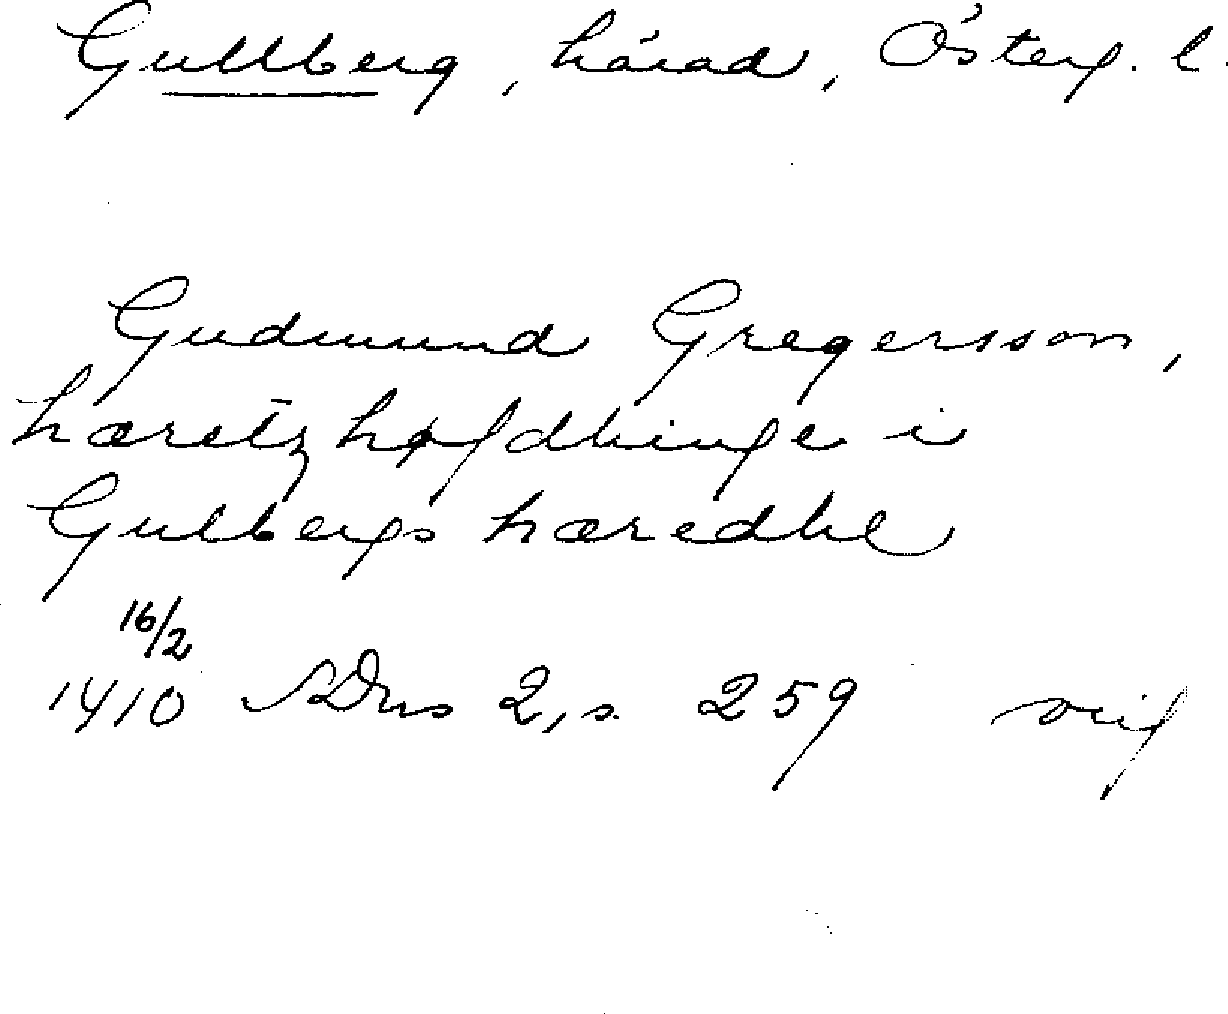 Gullberg, härad, Österg. l.
Gudmund Gregersson,
hæretzhøfdhinge i
Gulbergs hæredhe
16/2
1410 SDns 2, s. 259 orig